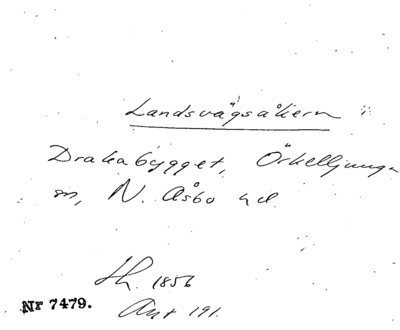 Landsvägsåkern
Drakabygget, Örkelljunga
sn, N. Åsbo hd
Sk. 1856
Nr 7479.
Akt 191.